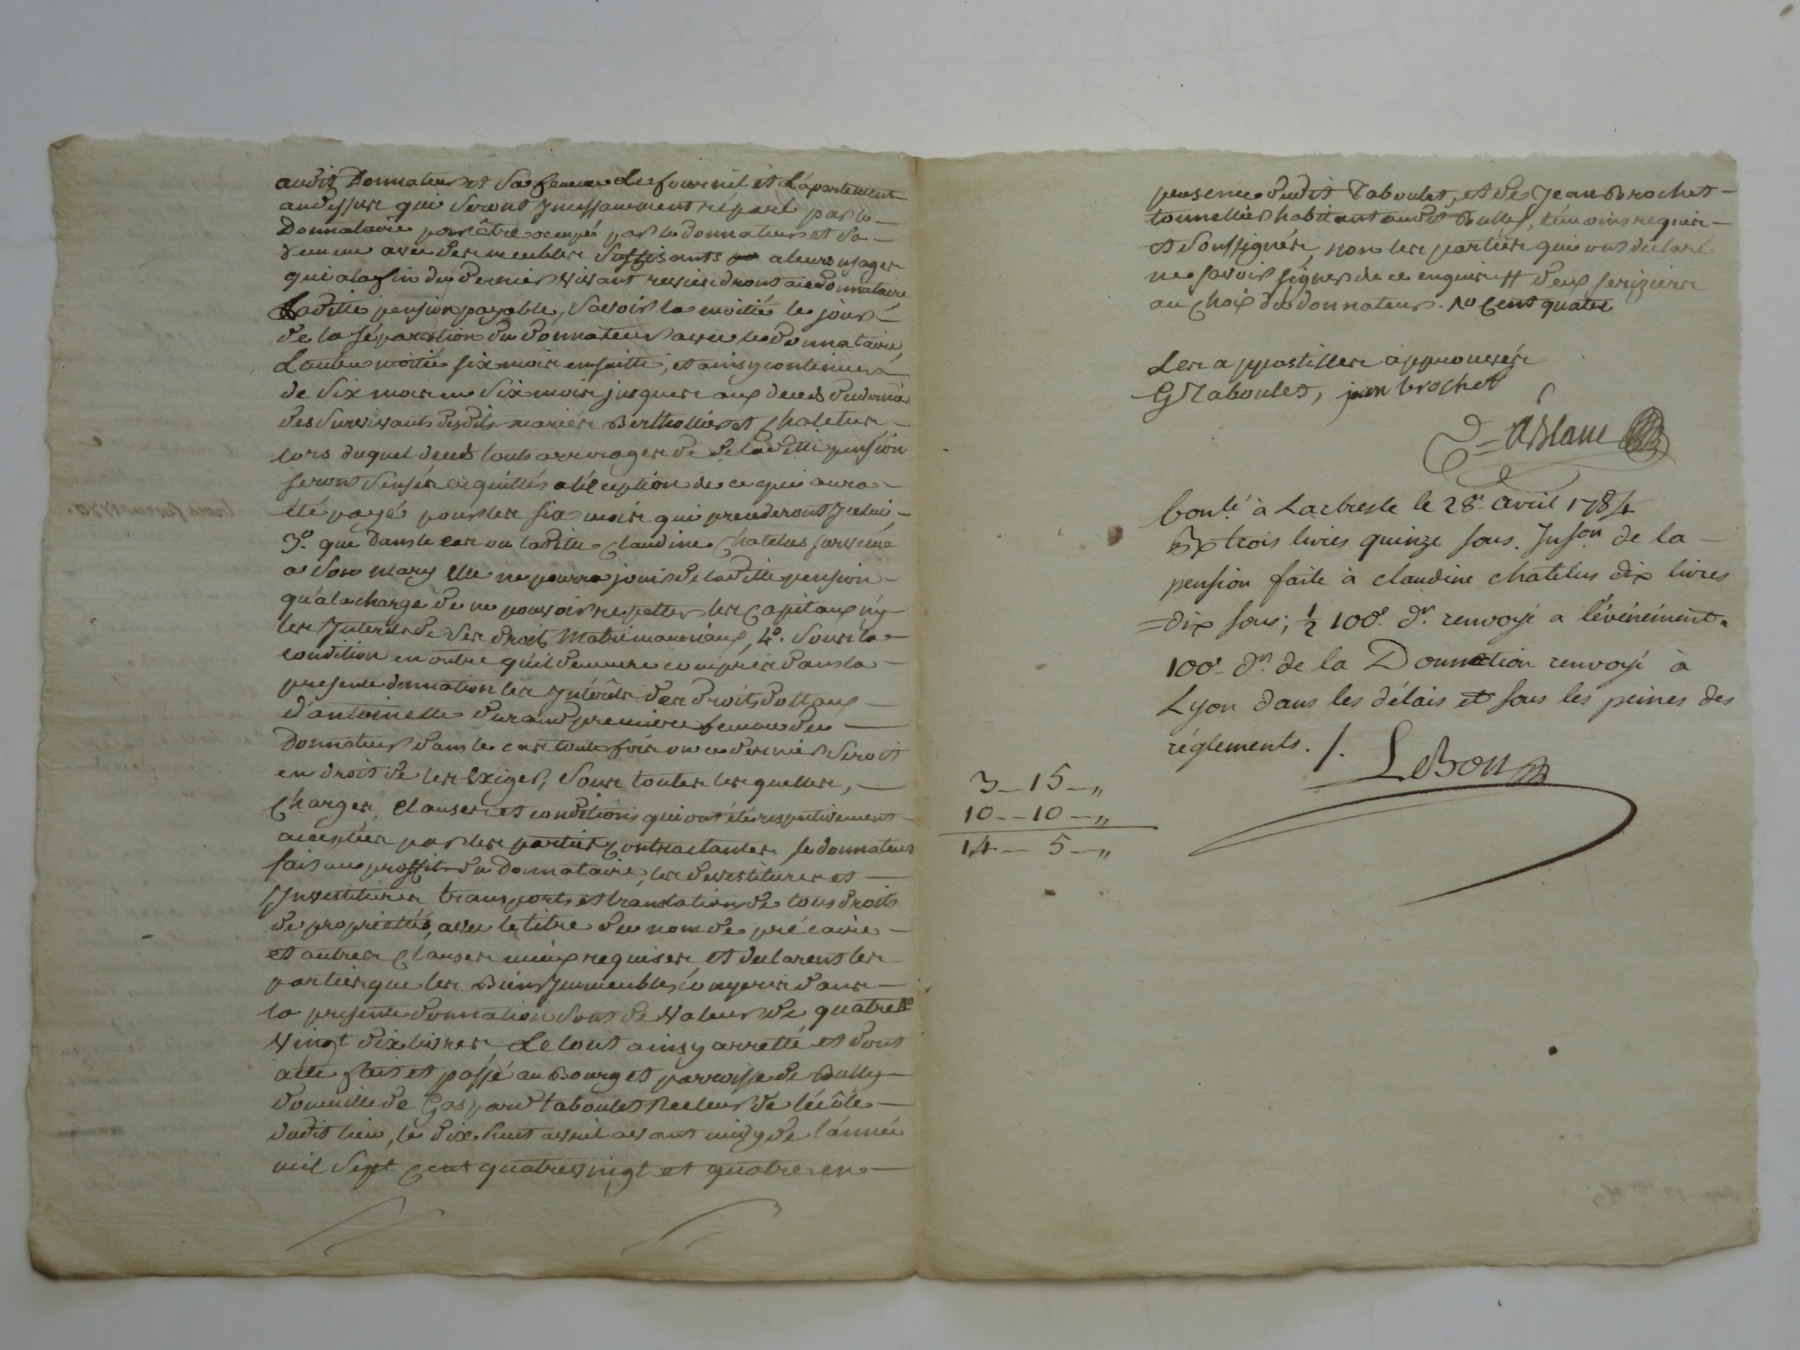 audit Donnateur et sa femme le fournil et l'apartement
audessus qui seront incessamment réparé par le
Donnataire pour être occupé par le donnateur et sa
femme avec des meubles suffisants a leurs usages
qui a la fin du dernier vivant reviendront au donnataire
Ladite pension payable, savoir la moitié le jour
de la séparation du donnateur avec le donnataire,
L'autre moitié six mois ensuitte, et ainsy continuera
de six mois en six mois jusques aux deced du dernier
des survivants desdits mariés Berthollier et Chatelus
lors duquel deced touts arrerages de ladite pension
seront sensés acquittés a l'éception de ce qui aura
été payé pour les six mois qui prenderont
3°. que dans le cas ou ladite Claudine Chatelus survive
a son mary elle ne pourra jouir de ladite pension
qu'a la charge de ne pouvoir repetter les capitaux ny
les Interets de ses droits matrimoniaux, 4°. sous la
condition en outre qu'il demeure compris dans la
presente donnation les Intérêts des droits dottaux
d'antoinette Durand premiere femme du
Donnateur dans le cas toute fois ou ce dernier seroit
en droit de les Exiger, sous toutes lesquelles,
Charges, clauses et conditions qui ont été respectivement
acceptées par les parties contractantes se donnateur
fait au proffit du Donnataire, les devestitures et
Investitures transports et translation de tous droits
de propriettés, avec le titre du nom de précaire
et autres clauses mieux requises, et declarent les
parties que les Biens Immeubles compris dans
la presente donnation sont de valeur de quatre
vingt dix livres, Le tout ainsy arretté et dont
acte fait et passé au Bourg et parroisse de Bully
domicille de Gaspard taboulet Recteur de l'écôle
dudit lieu, le dix huit avril avant midy de l'année
mil sept cent quatrevingt et quatre en
presence dudit Taboulet, et de Jean Brochet
tonnellier habitant audit Bully, temoins requis
et soussignés, non les parties qui ont declaré
ne savoir signer de ce enquis # deux seriziers
au choix du donnateur. cent quatre
Les appostilles approuvées
G Taboulet, jean brochet
Blanc
Conté à Larbresle le 28e avril 1784
trois livres quinze sous. Inson de la
pension faite à claudine chatelus dix livres
dix sous; ½ 100e dr renvoyé a l'événément.
100e dr de la Donnation renvoyé à
Lyon dans les délais et sous les peines des
réglements. /. LeBon
3 — 15 — „
10 — 10 — „
14 — 5 — „